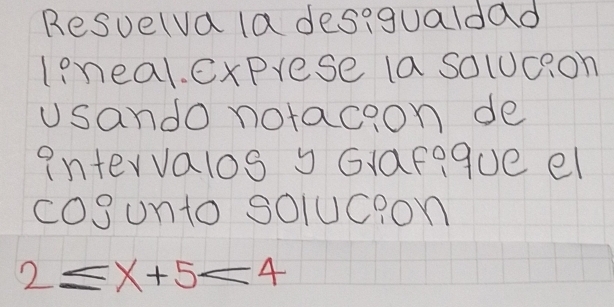 Resuelva la desigualdad
lineal. Exprese la solucion
usando notacion de
intervalos y Grafique el
cojunto solucion
2 ≤ x + 5 < 4